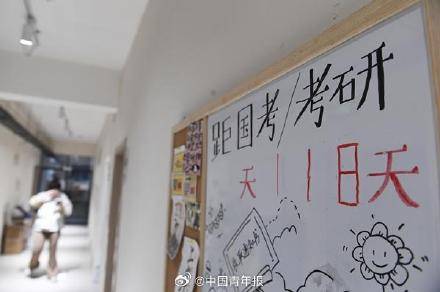 距国考/考研
天118天
@中国青年报